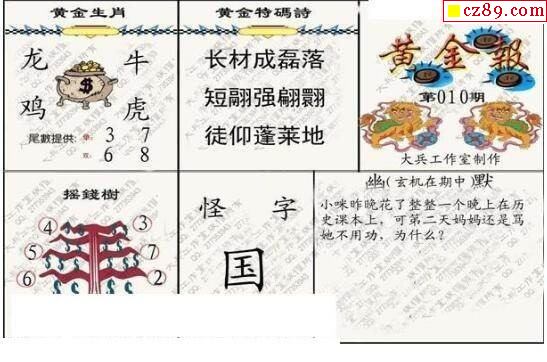 cz89.com
黄金生肖
龙 牛
鸡 虎
尾數提供: 单: 3 7
双: 6 8
黄金特碼詩
长材成磊落
短翮强翩翾
徒仰蓬莱地
黄金報
第010期
大兵工作室制作
摇錢樹
4 3
5 7
6 2
怪字
国
幽(玄机在期中)默
小咪昨晚花了整整一个晚上在历
史课本上，可第二天妈妈还是骂
她不用功、为什么?